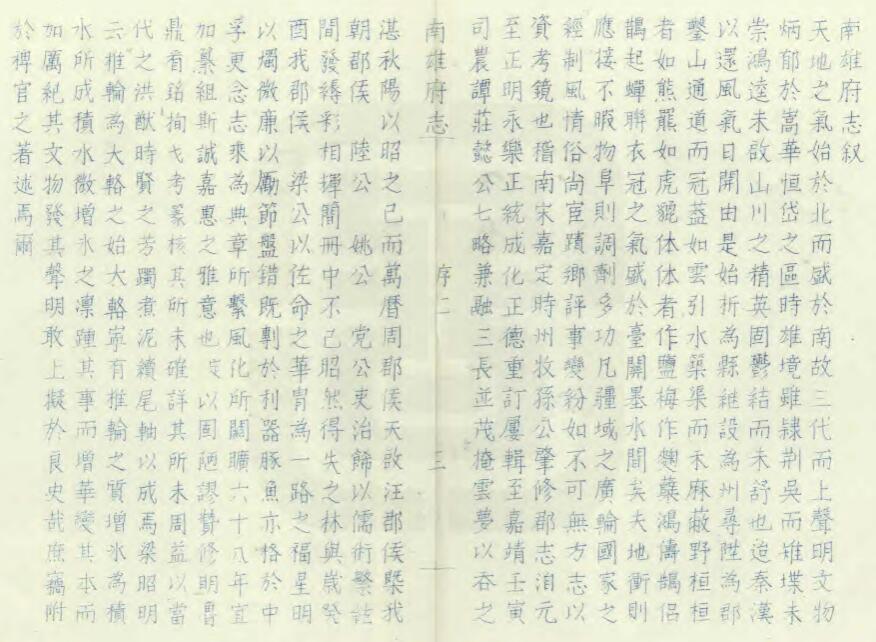 南雄府志叙
天地之氣始於北而盛於南故三代而上聲明文物
炳郁於嵩華恒岱之區時雄境雖隸荆吳而雉堞未
崇鴻逵未啟山川之精英固鬱結而未舒也迨秦漢
以還風氣日開由是始折為縣継設為州尋陞為郡
鑿山通道而冠葢如雲引水築渠而禾麻蔽野桓桓
者如熊羆如虎貔体体者作鹽梅作麴蘖鴻儔鵠侣
鵲起蟬聯衣冠之氣盛於臺開墨水間矣夫地衝則
應接不暇物阜則調劑多功凡疆域之廣輪國家之
經制風情俗尚宦蹟鄉評事變紛如不可無方志以
資考鏡也稽南宋嘉定時州牧孫公肇修郡志洎元
至正明永樂正統成化正德重訂屢輯至嘉靖壬寅
司農譚莊懿公七略兼融三長並茂掩雲夢以吞之
南雄府志
序二
三
湛秋陽以昭之已而萬曆周郡侯天啟汪郡侯槩我
朝郡侯 陸公 姚公 党公吏治餙以儒術繁訟
間發縟彩相揮簡冊中不已昭然得失之林與歲癸
酉我郡侯 梁公以佐命之華胄為一路之福星明
以燭微廉以勵節盤錯既剸於利器豚魚亦格於中
孚更念志乘為典章所繫風化所關曠六十八年宜
加纂組斯誠嘉惠之雅意也 以固陋謬贊修期魯
鼎看銘徇弋考篆核其所未確詳其所未周益以當
代之洪猷時賢之芳躅煮泥續尾軸以成焉梁昭明
云推輪為大輅之始大輅寧有推輪之質增氷為積
水所成積水微增氷之凛踵其事而增華變其本而
如厲紀其文物發其聲明敢上擬於良史哉庶竊附
於稗官之著述焉爾